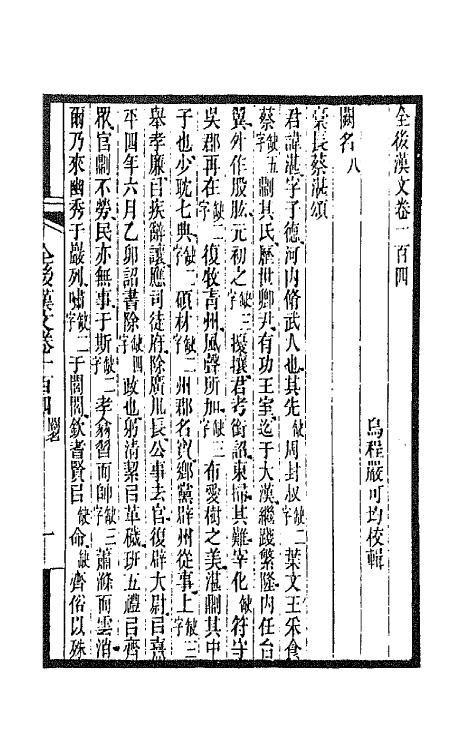 全後漢文卷一百四
烏程嚴可均校輯
闕名八
槀長蔡湛頌
君諱湛字子德河内脩武人也其先缺周封叔缺二字葉文王采食
蔡缺五字則其氏歷世卿尹有功王室迄于大漢繼踐繁隆内任台
翼外作股肱元初之缺三字擾攘君考銜詔東掃其難宰化缺符守
吳郡再在缺二字復牧青州風聲所加缺三字布愛樹之美湛則其中
子也少耽七典缺二字碩材缺二字州郡名賓鄉黨辟州從事上缺三字
舉孝廉㠯疾辭讓應司徒府除廣川長公事去官復辟大尉㠯熹
平四年六月乙卯詔書除缺四字政也躬清絜㠯革穢班五禮㠯齊
眾官則不勞民亦無事于斯缺二字孝翕習而帥字缺三蕭滌而雲消
爾乃來幽秀于巖列嘯缺二字于閭閻欽耆賢㠯缺命缺齊俗以殊
全後漢文卷一百四
闕名
一